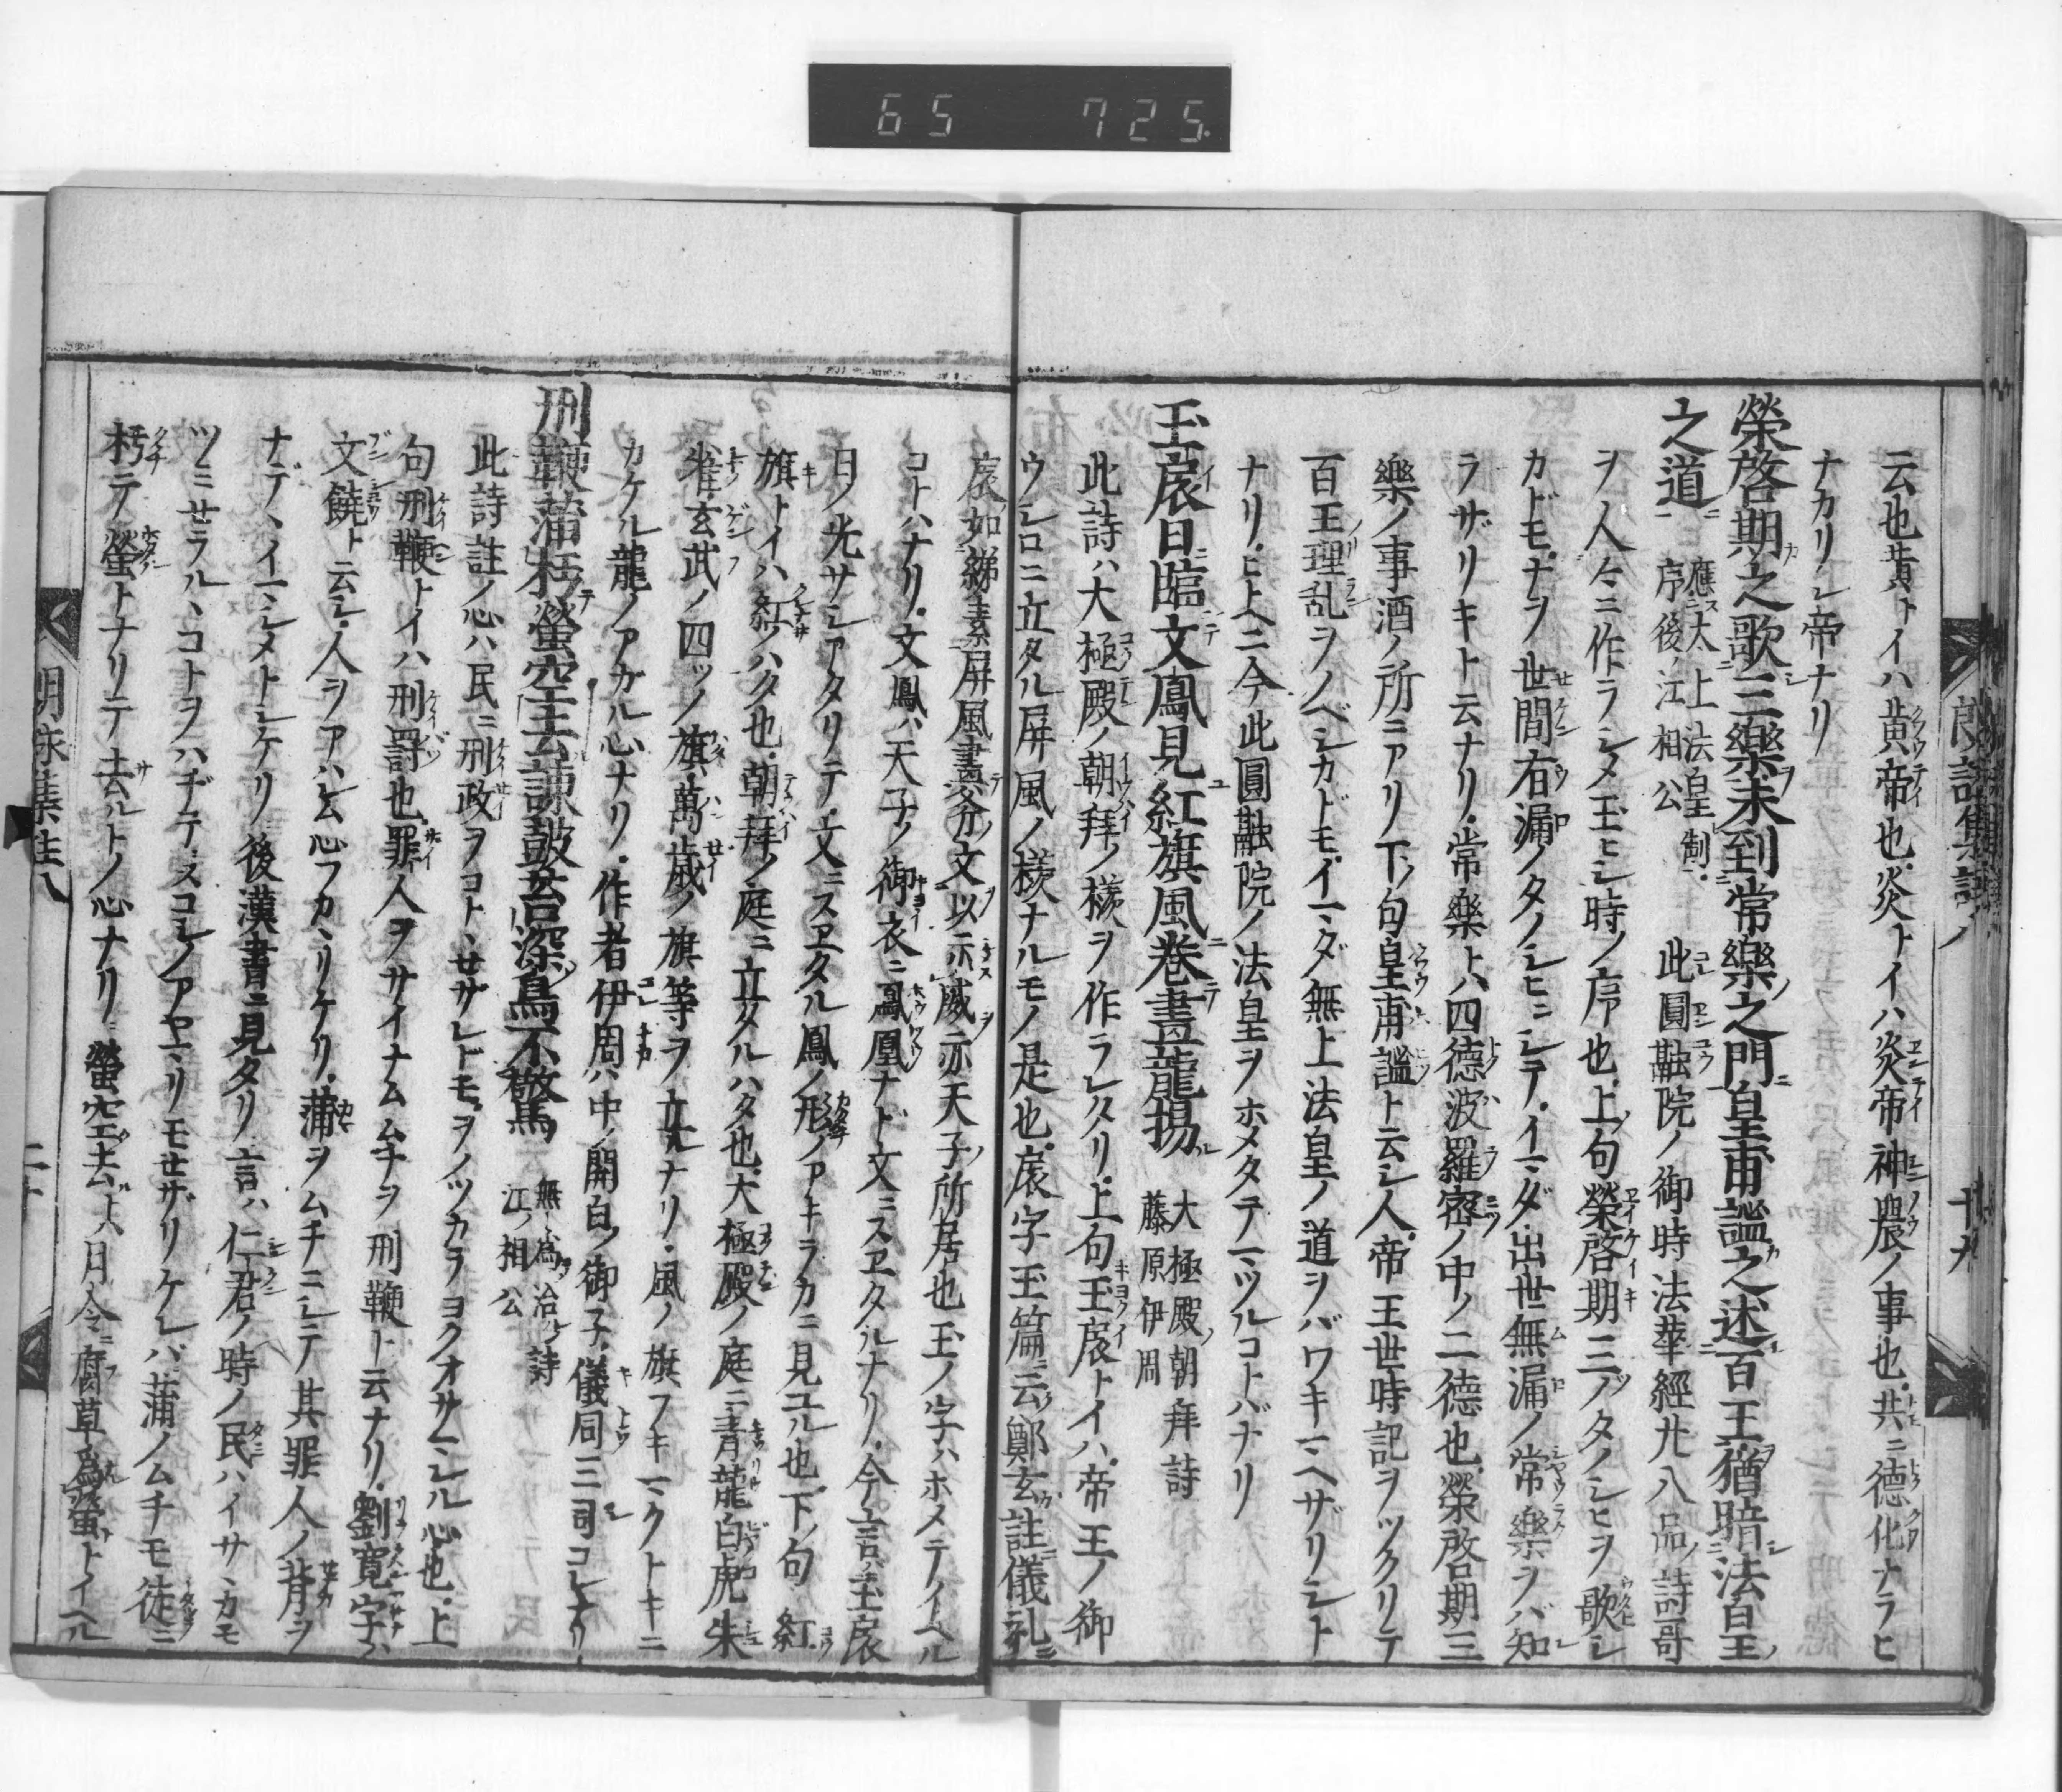 65 725.
朗詠集註ノ 十九
云也黄トイハ黄帝也．炎トイハ炎帝神農ノ事也．共ニ徳化ナラヒ
ナカリシ帝ナリ
榮啓期之歌三樂未到常樂之門皇甫謐之述百王猶暗法皇
之道 應太上法皇制． 序後江相公 此圓融院ノ御時法華經廿八品ノ詩哥
ヲ人々ニ作ラシメ玉ヒシ時ノ序也．上句榮啓期三ノタノシヒヲ歌シ
カドモ．ナヲ世間有漏ノタノシヒニシテ．イマダ出世無漏ノ常樂ヲバ知
ラザリキト云ナリ．常樂トハ四徳波羅密ノ中ノ二徳也．榮啓期三
樂ノ事酒ノ所ニアリ下ノ句皇甫謐ト云シ人．帝王世時記ヲツクリテ
百王理乱ヲノベシカドモ．イマダ無上法皇ノ道ヲバワキマヘザリシト
ナリ．ヒトヘニ今此圓融院ノ法皇ヲホメタテマツルコトバナリ
玉扆日臨文鳳見紅旗風巻畫龍揚 大極殿ノ朝拜詩 藤原伊周
此詩ハ大極殿ノ朝拜ノ様ヲ作ラレタリ．上句玉扆トイハ．帝王ノ御
ウシロニ立タル屏風ノ様ナルモノ是也．扆字玉篇ニ云鄭玄註儀礼ニ
扆如綈素屏風畫斧文以示威亦天子所居也玉ノ字ハホメテイヘル
コトハナリ．文鳳ハ天子ノ御衣ニ鳳凰ナド文ニスヱタルナリ．今言ハ玉扆
日ノ光サシアタリテ．文ニスヱタル鳳ノ形ノアキラカニ見ユル也．下ノ句紅
旗トイハ紅ノハタ也．朝拜ノ庭ニ立タルハタ也．大極殿ノ庭ニ青龍白虎朱
雀玄武ノ四ツノ旗萬歳ノ旗等ヲ立ルナリ．風ノ旗フキマクトキニ
カケル龍ノアガル心ナリ．作者伊周ハ中ノ關白ノ御子．儀同三司コレナリ
刑鞭蒲朽螢空去諫鼓苔深鳥不驚 無為治詩 江ノ相公
此詩註ノ心ハ民ニ刑政ヲコトヽセザレドモ．ヲノヅカラヨクオサマレル心也．上
句刑鞭トイハ刑罸也罪人ヲサイナムムチヲ刑鞭ト云ナリ．劉寛字ハ
文饒ト云シ．人ヲアハレム心フカヽリケリ．蒲ヲムチニシテ其罪人ノ背ヲ
ナデヽイマシメトシケリ後漢書ニ見タリ言ハ仁君ノ時ノ民ハイサヽカモ
ツミセラルヽコトヲハヂテ．スコシノアヤマリモセザリケレバ．蒲ノムチモ徒ニ
朽テ螢トナリテ去ルトノ心ナリ螢空去トハ月令ニ腐草爲螢トイヘル
朗詠集註八 二十